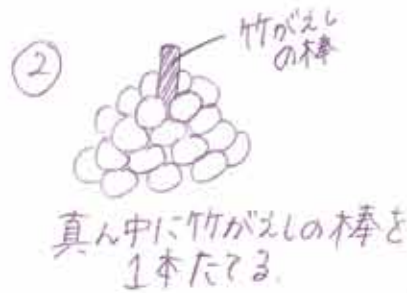 ②
竹がえし
の棒
真ん中に竹がえしの棒を
1本たてる.